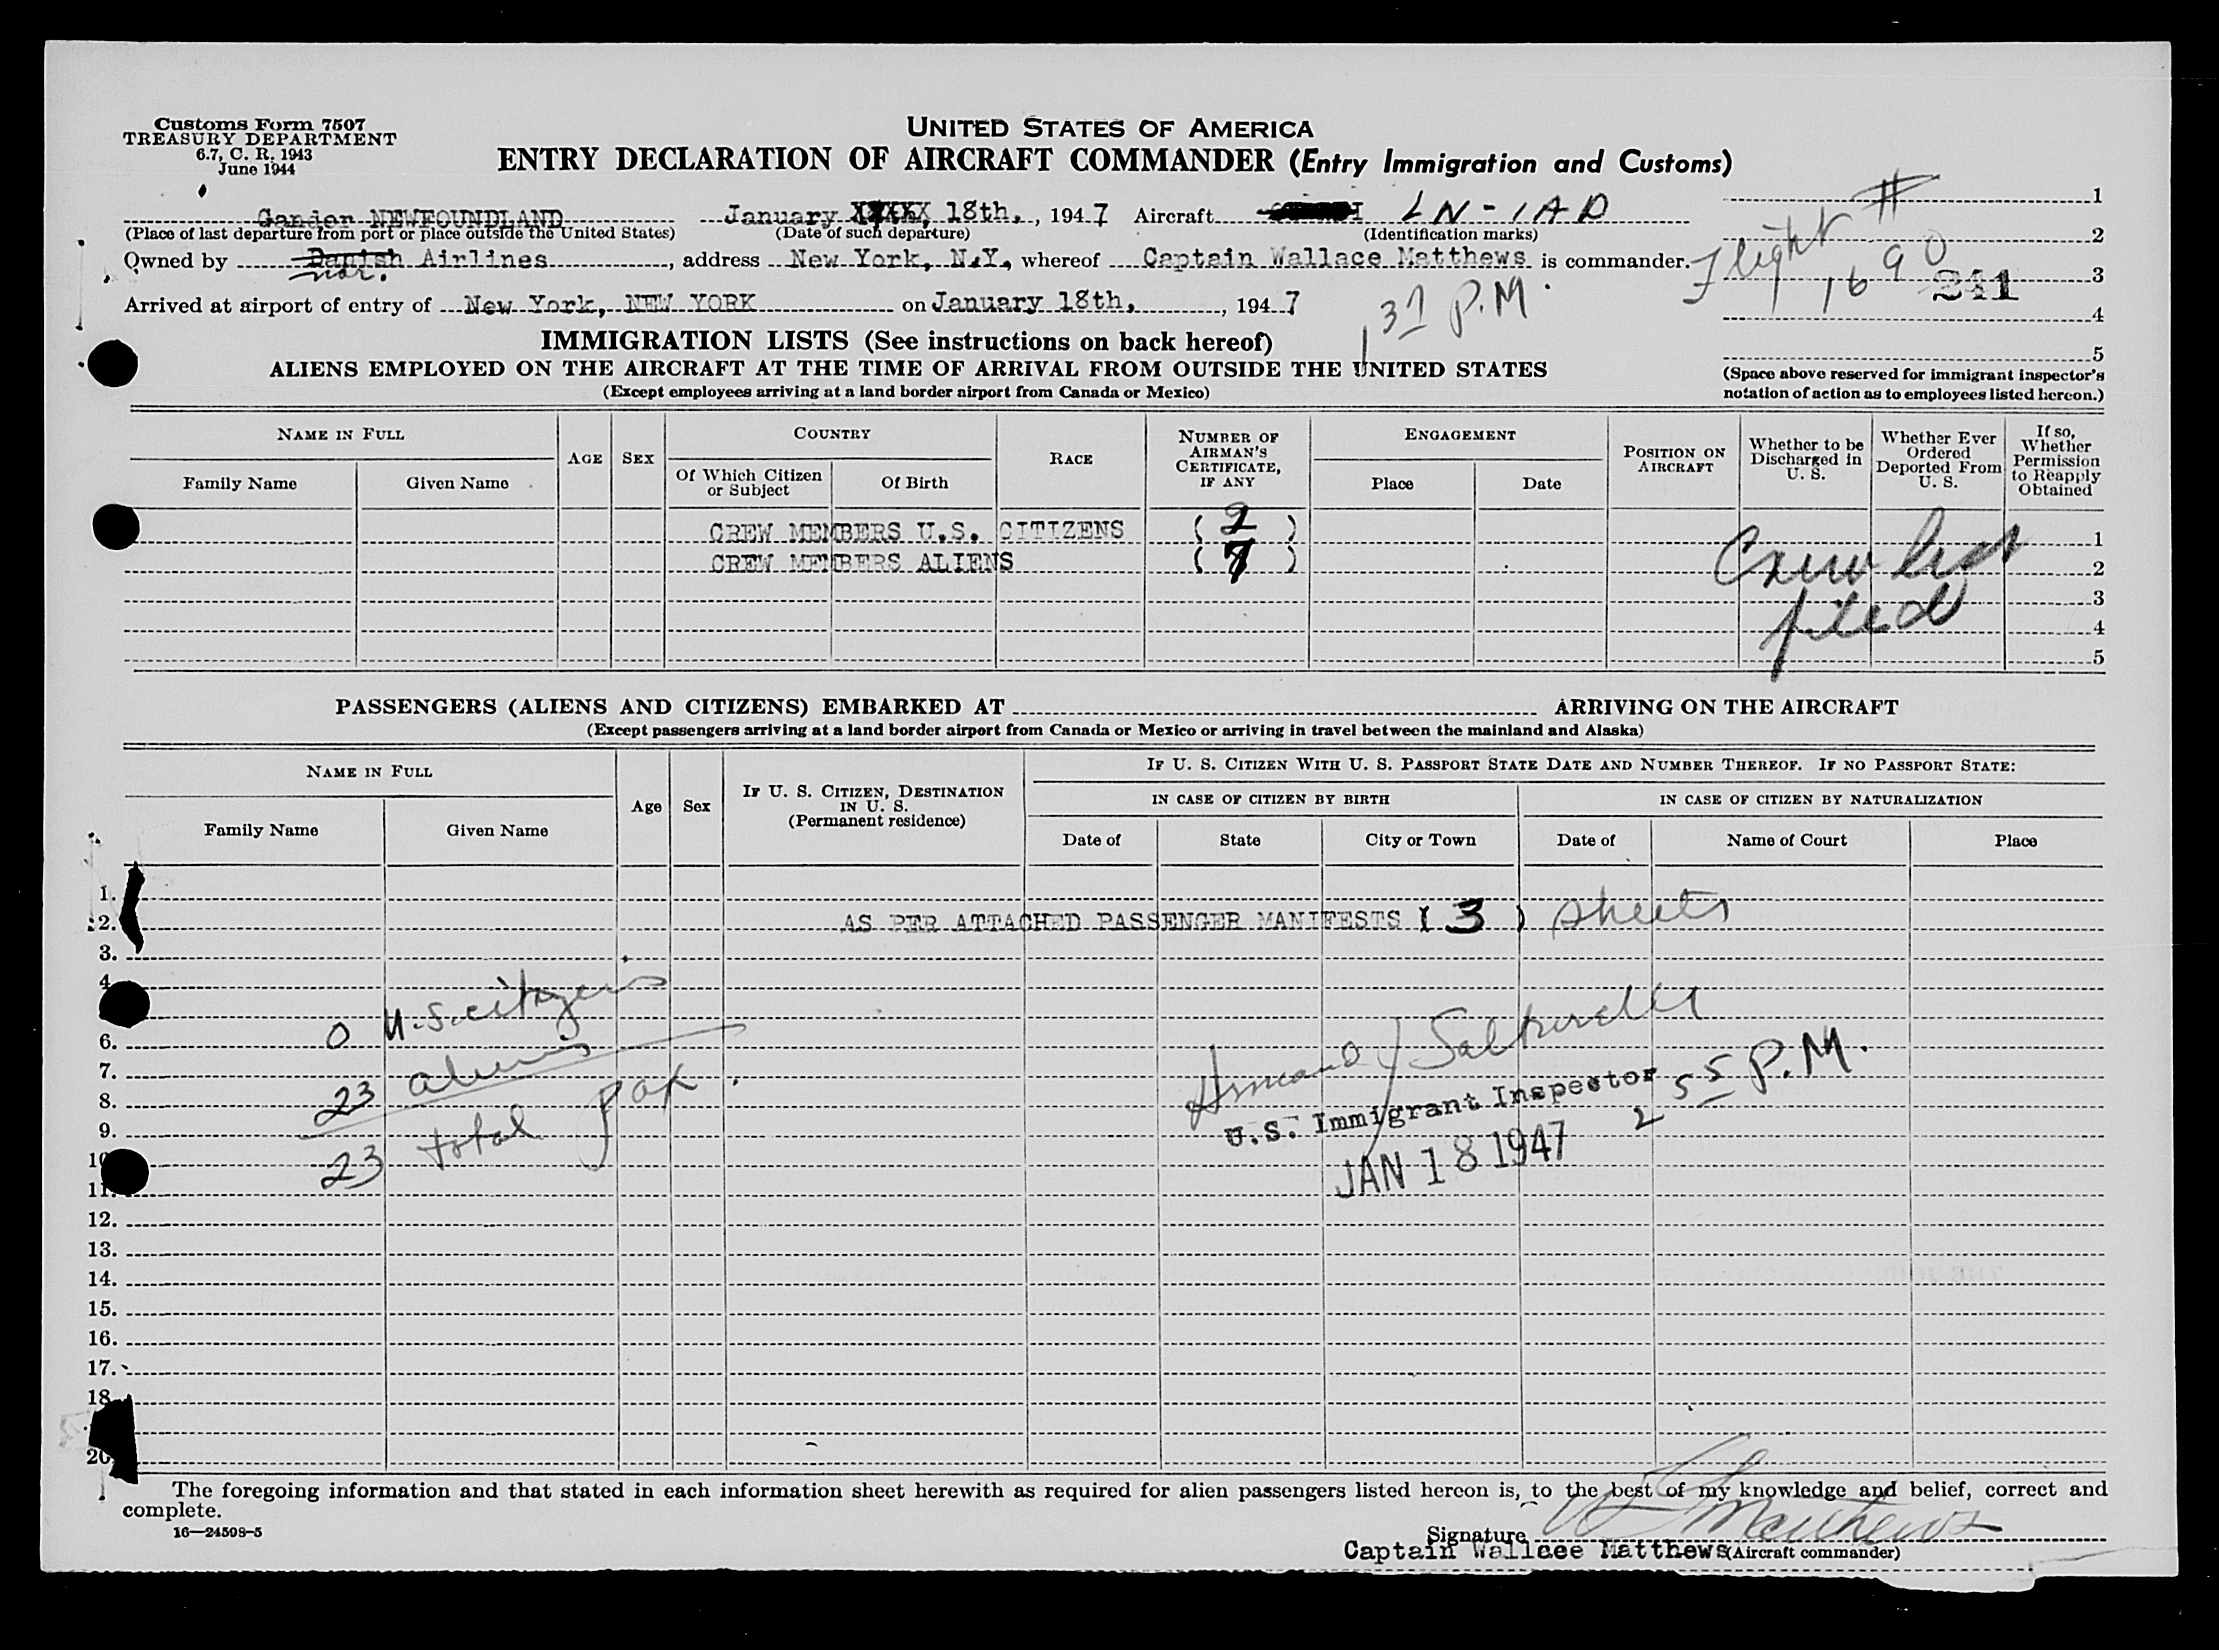 Customs Form 7507
TREASURY DEPARTMENT
6.7, C. R. 1943
June 1944
UNITED STATES OF AMERICA
ENTRY DECLARATION OF AIRCRAFT COMMANDER (Entry Immigration and Customs)
Gander NEWFOUNDLAND January 18th, , 1947 Aircraft LN-IAD
(Place of last departure from port or place outside the United States) (Date of such departure) (Identification marks)
Owned by Danish Airlines , address New York, N.Y., whereof Captain Wallace Matthews is commander.
nor.
Arrived at airport of entry of New York, NEW YORK on January 18th, , 1947
1 37 P.M.
Flight #
1690
241
1
2
3
4
5
(Space above reserved for immigrant inspector's
notation of action as to employees listed hereon.)
IMMIGRATION LISTS (See instructions on back hereof)
ALIENS EMPLOYED ON THE AIRCRAFT AT THE TIME OF ARRIVAL FROM OUTSIDE THE UNITED STATES
(Except employees arriving at a land border airport from Canada or Mexico)
NAME IN FULL
Family Name Given Name
AGE SEX
COUNTRY
Of Which Citizen or Subject Of Birth
RACE
NUMBER OF AIRMAN'S CERTIFICATE, IF ANY
ENGAGEMENT
Place Date
POSITION ON AIRCRAFT
Whether to be Discharged in U. S.
Whether Ever Ordered Deported From U. S.
If so, Whether Permission to Reapply Obtained
CREW MEMBERS U.S. CITIZENS ( 2 ) 1
CREW MEMBERS ALIENS ( 7 ) 2
Crew list
filed
3
4
5
PASSENGERS (ALIENS AND CITIZENS) EMBARKED AT ARRIVING ON THE AIRCRAFT
(Except passengers arriving at a land border airport from Canada or Mexico or arriving in travel between the mainland and Alaska)
NAME IN FULL
Family Name Given Name
Age Sex
IF U. S. CITIZEN, DESTINATION IN U. S. (Permanent residence)
IF U. S. CITIZEN WITH U. S. PASSPORT STATE DATE AND NUMBER THEREOF. IF NO PASSPORT STATE:
IN CASE OF CITIZEN BY BIRTH IN CASE OF CITIZEN BY NATURALIZATION
Date of State City or Town Date of Name of Court Place
1.
2. AS PER ATTACHED PASSENGER MANIFESTS ( 3 ) sheets
3.
4.
0 U.S. citizens
6.
7.
23 aliens
8.
9.
23 total pax.
10
11.
Armand J
U.S. Immigrant Inspector 2 55 P.M.
JAN 18 1947
12.
13.
14.
15.
16.
17.
18
20
The foregoing information and that stated in each information sheet herewith as required for alien passengers listed hereon is, to the best of my knowledge and belief, correct and
complete.
16—24598-5
Signature W Matthews
Captain Wallcee Matthews (Aircraft commander)